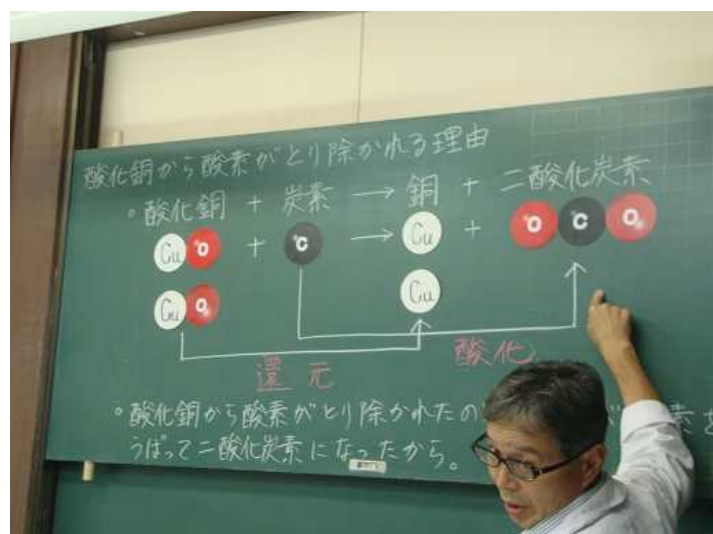 酸化銅から酸素がとり除かれる理由
。酸化銅 + 炭素 → 銅 + 二酸化炭素
Cu O + C → Cu + O C O
Cu O Cu
酸化
還元
。酸化銅から酸素がとり除かれたの 素を
うばって二酸化炭素になったから。